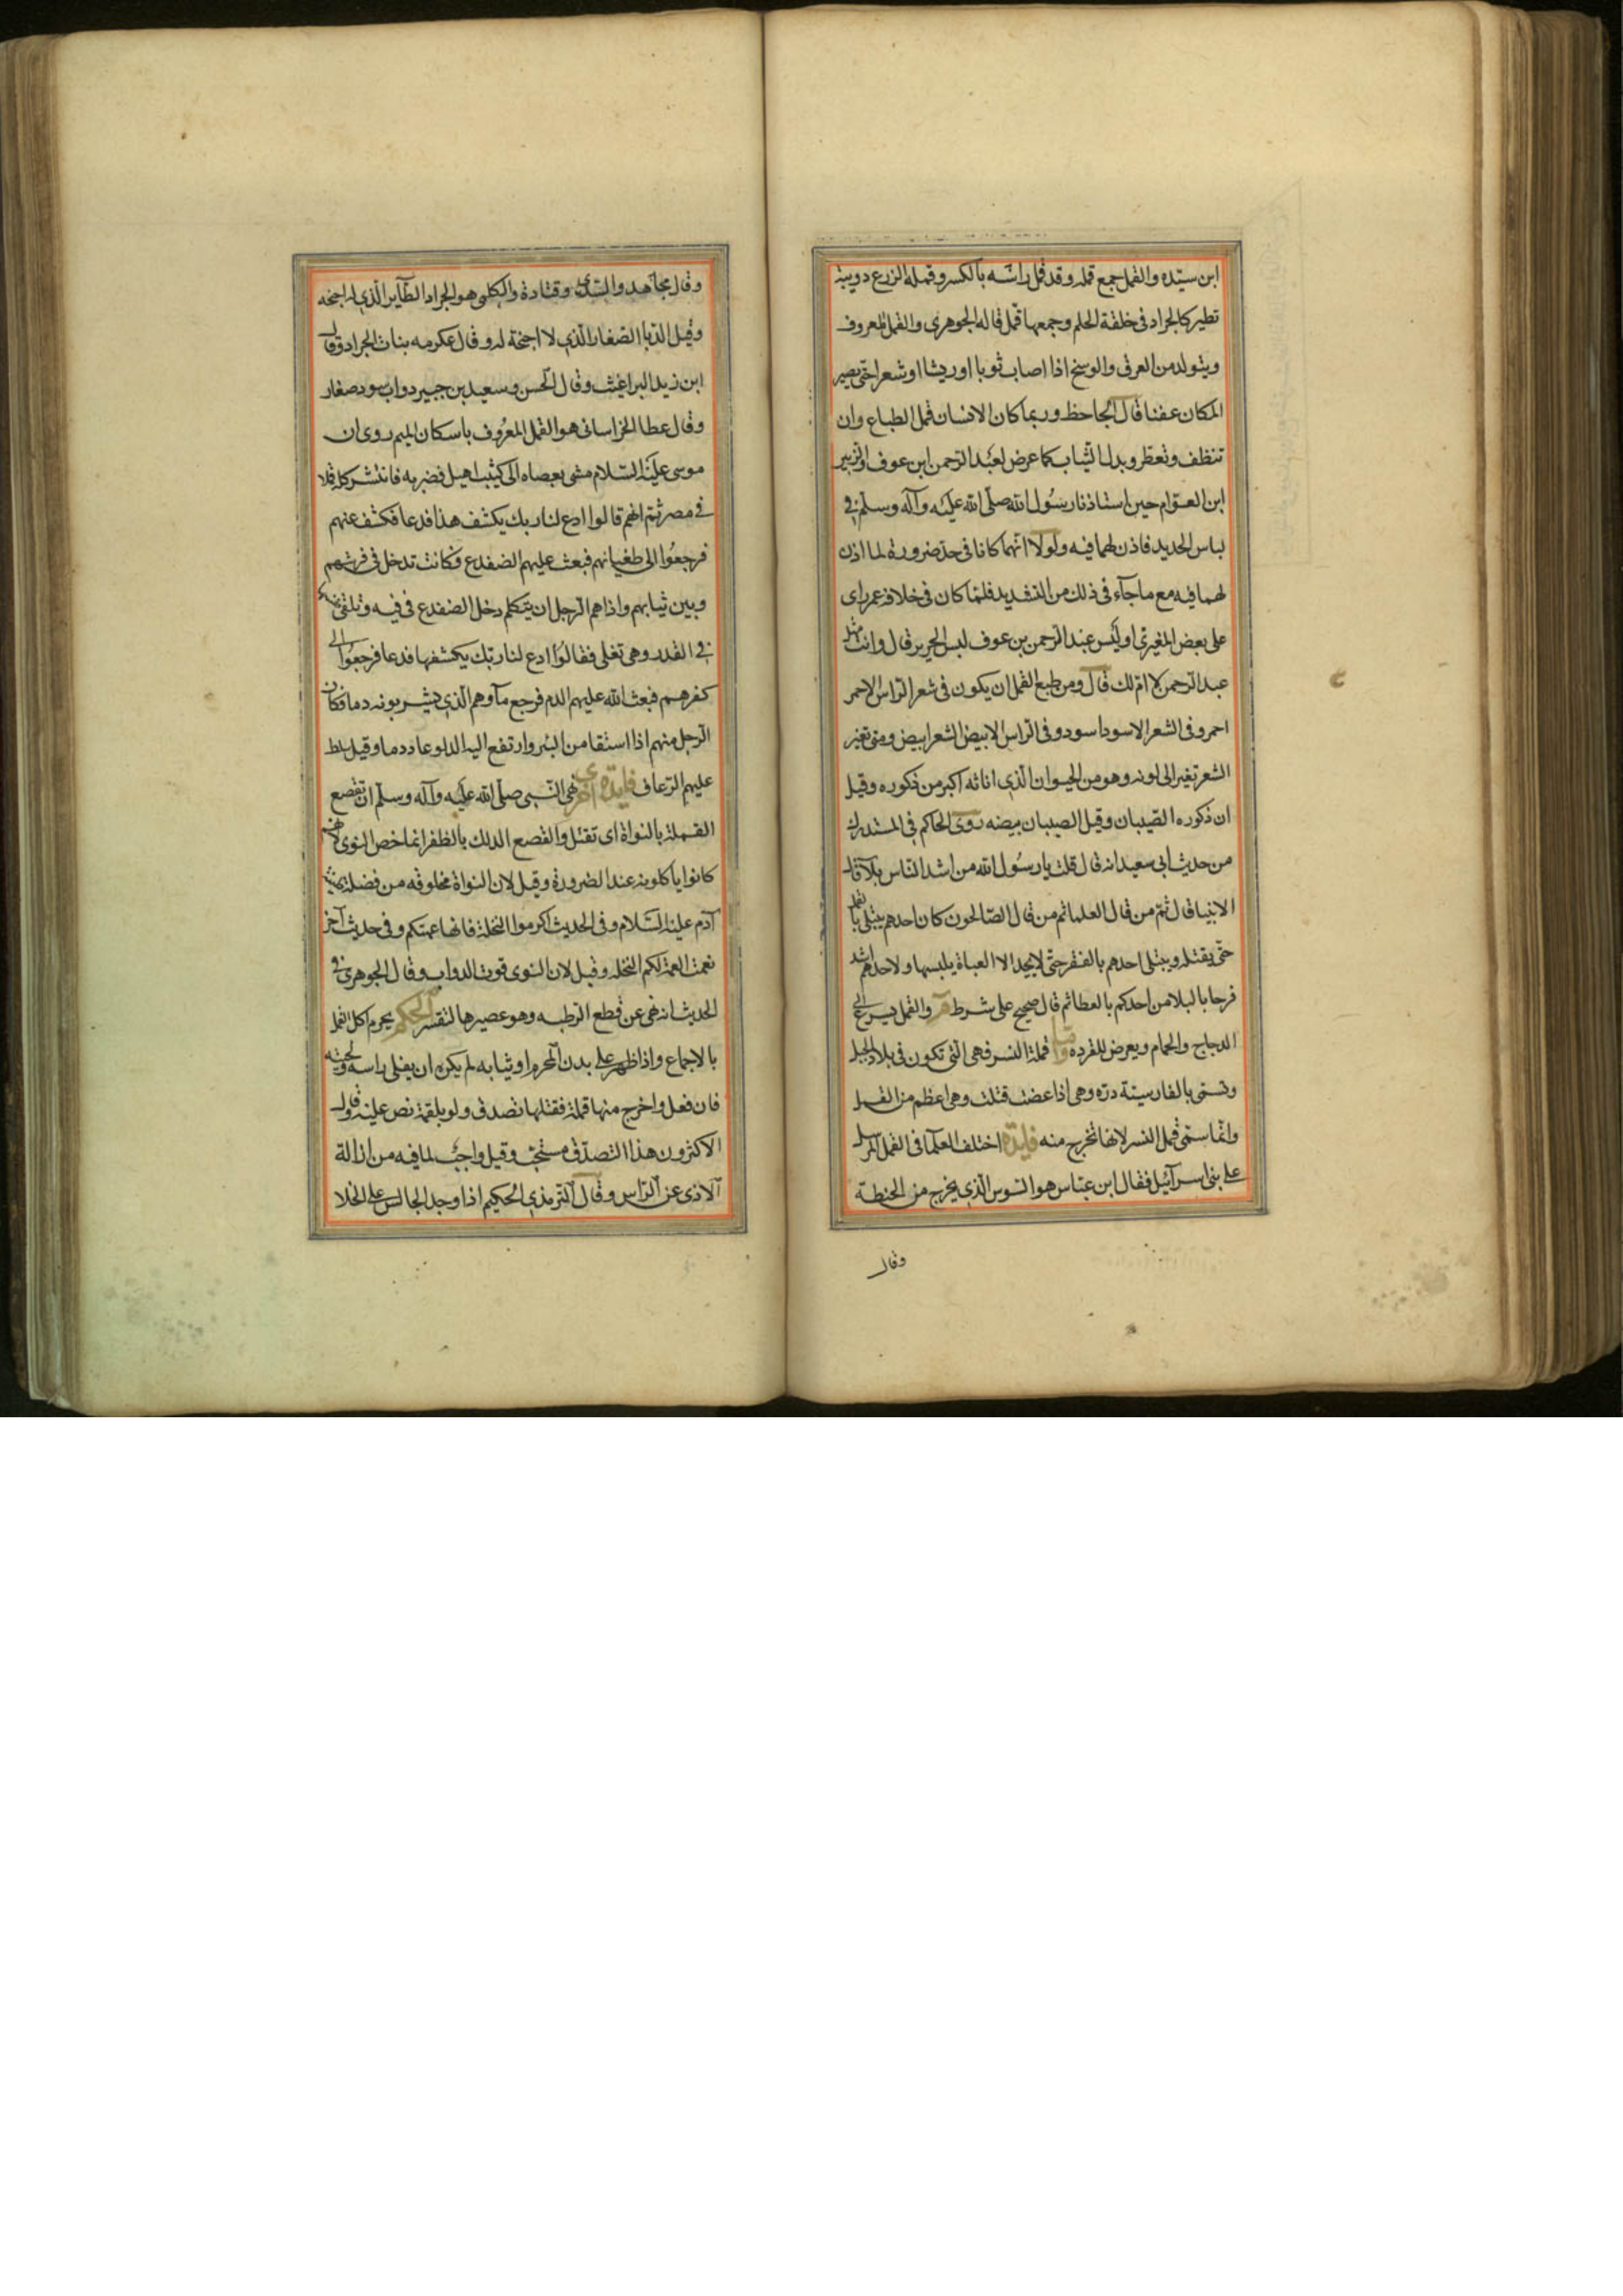 ابن سيّده والقمل جمع قملة وقد قمل راسه بالكسر وقملة الزرع دويبة
تطير كالجراد في خلقة الحلم وجمعها قمل قاله الجوهرى والقمل المعروف
ويتولد من العرق والوسخ اذا اصاب ثوبا او ريشا او شعرا حتى يصير
المكان عفنا قال الجاحظ وربما كان الانسان قمل الطباع وان
تنظف وتعطر وبدل الثياب كما عرض لعبد الرحمن ابن عوف والزبير
ابن العوّام حين استاذنا رسول الله صلّى الله عليه وآله وسلّم في
لباس الحديد فاذن لهما فيه ولولا انهما كانا في حد ضرورة لما اذن
لهما فيه مع ما جآء في ذلك من التشديد فلمّا كان في خلافة عمر راى
على بعض المغيرى اوليس عبد الرحمن بن عوف لبس الحرير قال وانت مثل
عبد الرحمن لا امّ لك قال ومن طبع القمل ان يكون في شعر الراس الاحمر
احمر وفى الشعر الاسود اسود وفى الراس الابيض الشعر ابيض ومتى تغير
الشعر تغير الى لونه وهو من الحيوان الّذي اناثه اكبر من ذكوره وقيل
ان ذكوره الصيبان وقيل الصيبان بيضه روى الحاكم في المستدرك
من حديث ابى سعيد انه قال قلت يا رسول الله من اشد الناس بلآء قال
الانبيا قال ثمّ من قال العلما ثم من قال الصّالحون كان احدهم يبتلى بالقمل
حتّى يقتله ويبتلى احدهم بالفقر حتّى لا يجد الا العباة يلبسها ولاحدهم اشد
فرحا بالبلا من احدكم بالعطا ثم قال صحيح على شرط م والقمل يسرع الى
الدجاج والحمام ويعرض للقرده واما قملة النسر فهى التى تكون في بلاد الجبل
وتسمّى بالفارسيّة درّه وهى اذا عضت قتلت وهى اعظم من القمل
وانّما سمّى قمل النسر لانها تخرج منه فايدة اختلف العلمآ في القمل المرسل
على بنى اسرآئيل فقال ابن عبّاس هو السّوس الّذي يخرج من الحنطة
وقال
وقال مجاهد والسّدى وقتادة والكلبى هو الجراد الطّاير الّذي له اجنحه
وقيل الدّبا الصّغار الّذي لا اجنحة له وقال عكرمه بنات الجراد وقال
ابن زيد البراغيث وقال الحسن وسعيد بن جبير دواب سود صغار
وقال عطا الخراسانى هو القمل المعرُوف باسكان الميم روى ان
موسى عليه السّلام مشى بعصاه الى كثيب اهيل فضربه فانتشر كله قملا
في مصر ثمّ انهم قالوا ادع لنا ربك يكشف هذا فدعا فكشف عنهم
فرجعوا الى طغيانهم فبعث عليهم الضفدع فكانت تدخل في فرشهم
وبين ثيابهم واذا هم الرجل ان يتكلم دخل الضفدع في فيه وتلقى نفسها
في القدر وهى تغلى فقالوا ادع لنا ربّك يكشفها فدعا فرجعوا الى
كفرهم فبعث الله عليهم الدم فرجع مآوهم الّذي يشربونه دما فكان
الرجل منهم اذا استقا من البئر وارتفع اليه الدلو عاد دما وقيل سلط
عليهم الرّعاف فايدة اخرى نهى النّبى صلّى الله عليه وآله وسلّم ان تقصع
القملة بالنواة اى تقتل والقصع الدلك بالظفر انما خص النوى لانهم
كانوا ياكلونه عند الضرورة وقيل لان النواة مخلوقه من فضلة طينة
آدم عليه السّلام وفى الحديث اكرموا النخلة فانها عمتكم وفى حديث آخر
نعمت العمة لكم النخله وقيل لان النوى قوت الدواب وقال الجوهرى في
الحديث انه نهى عن قطع الرطبه وهو عصيرها لتقشر الحكم يحرم اكل القمل
بالاجماع واذا ظهر على بدن المحرم او ثيابه لم يكره ان يفلى راسه ولحيته
فان فعل واخرج منها قملة فقتلها تصدق ولو بلقمة نص عليه وقال
الاكثرون هذا التصدّق مستحبّ وقيل واجب لما فيه من ازالة
الاذى عن الرّاس وقال الترمذي الحكيم اذا وجد الجالس على الخلا